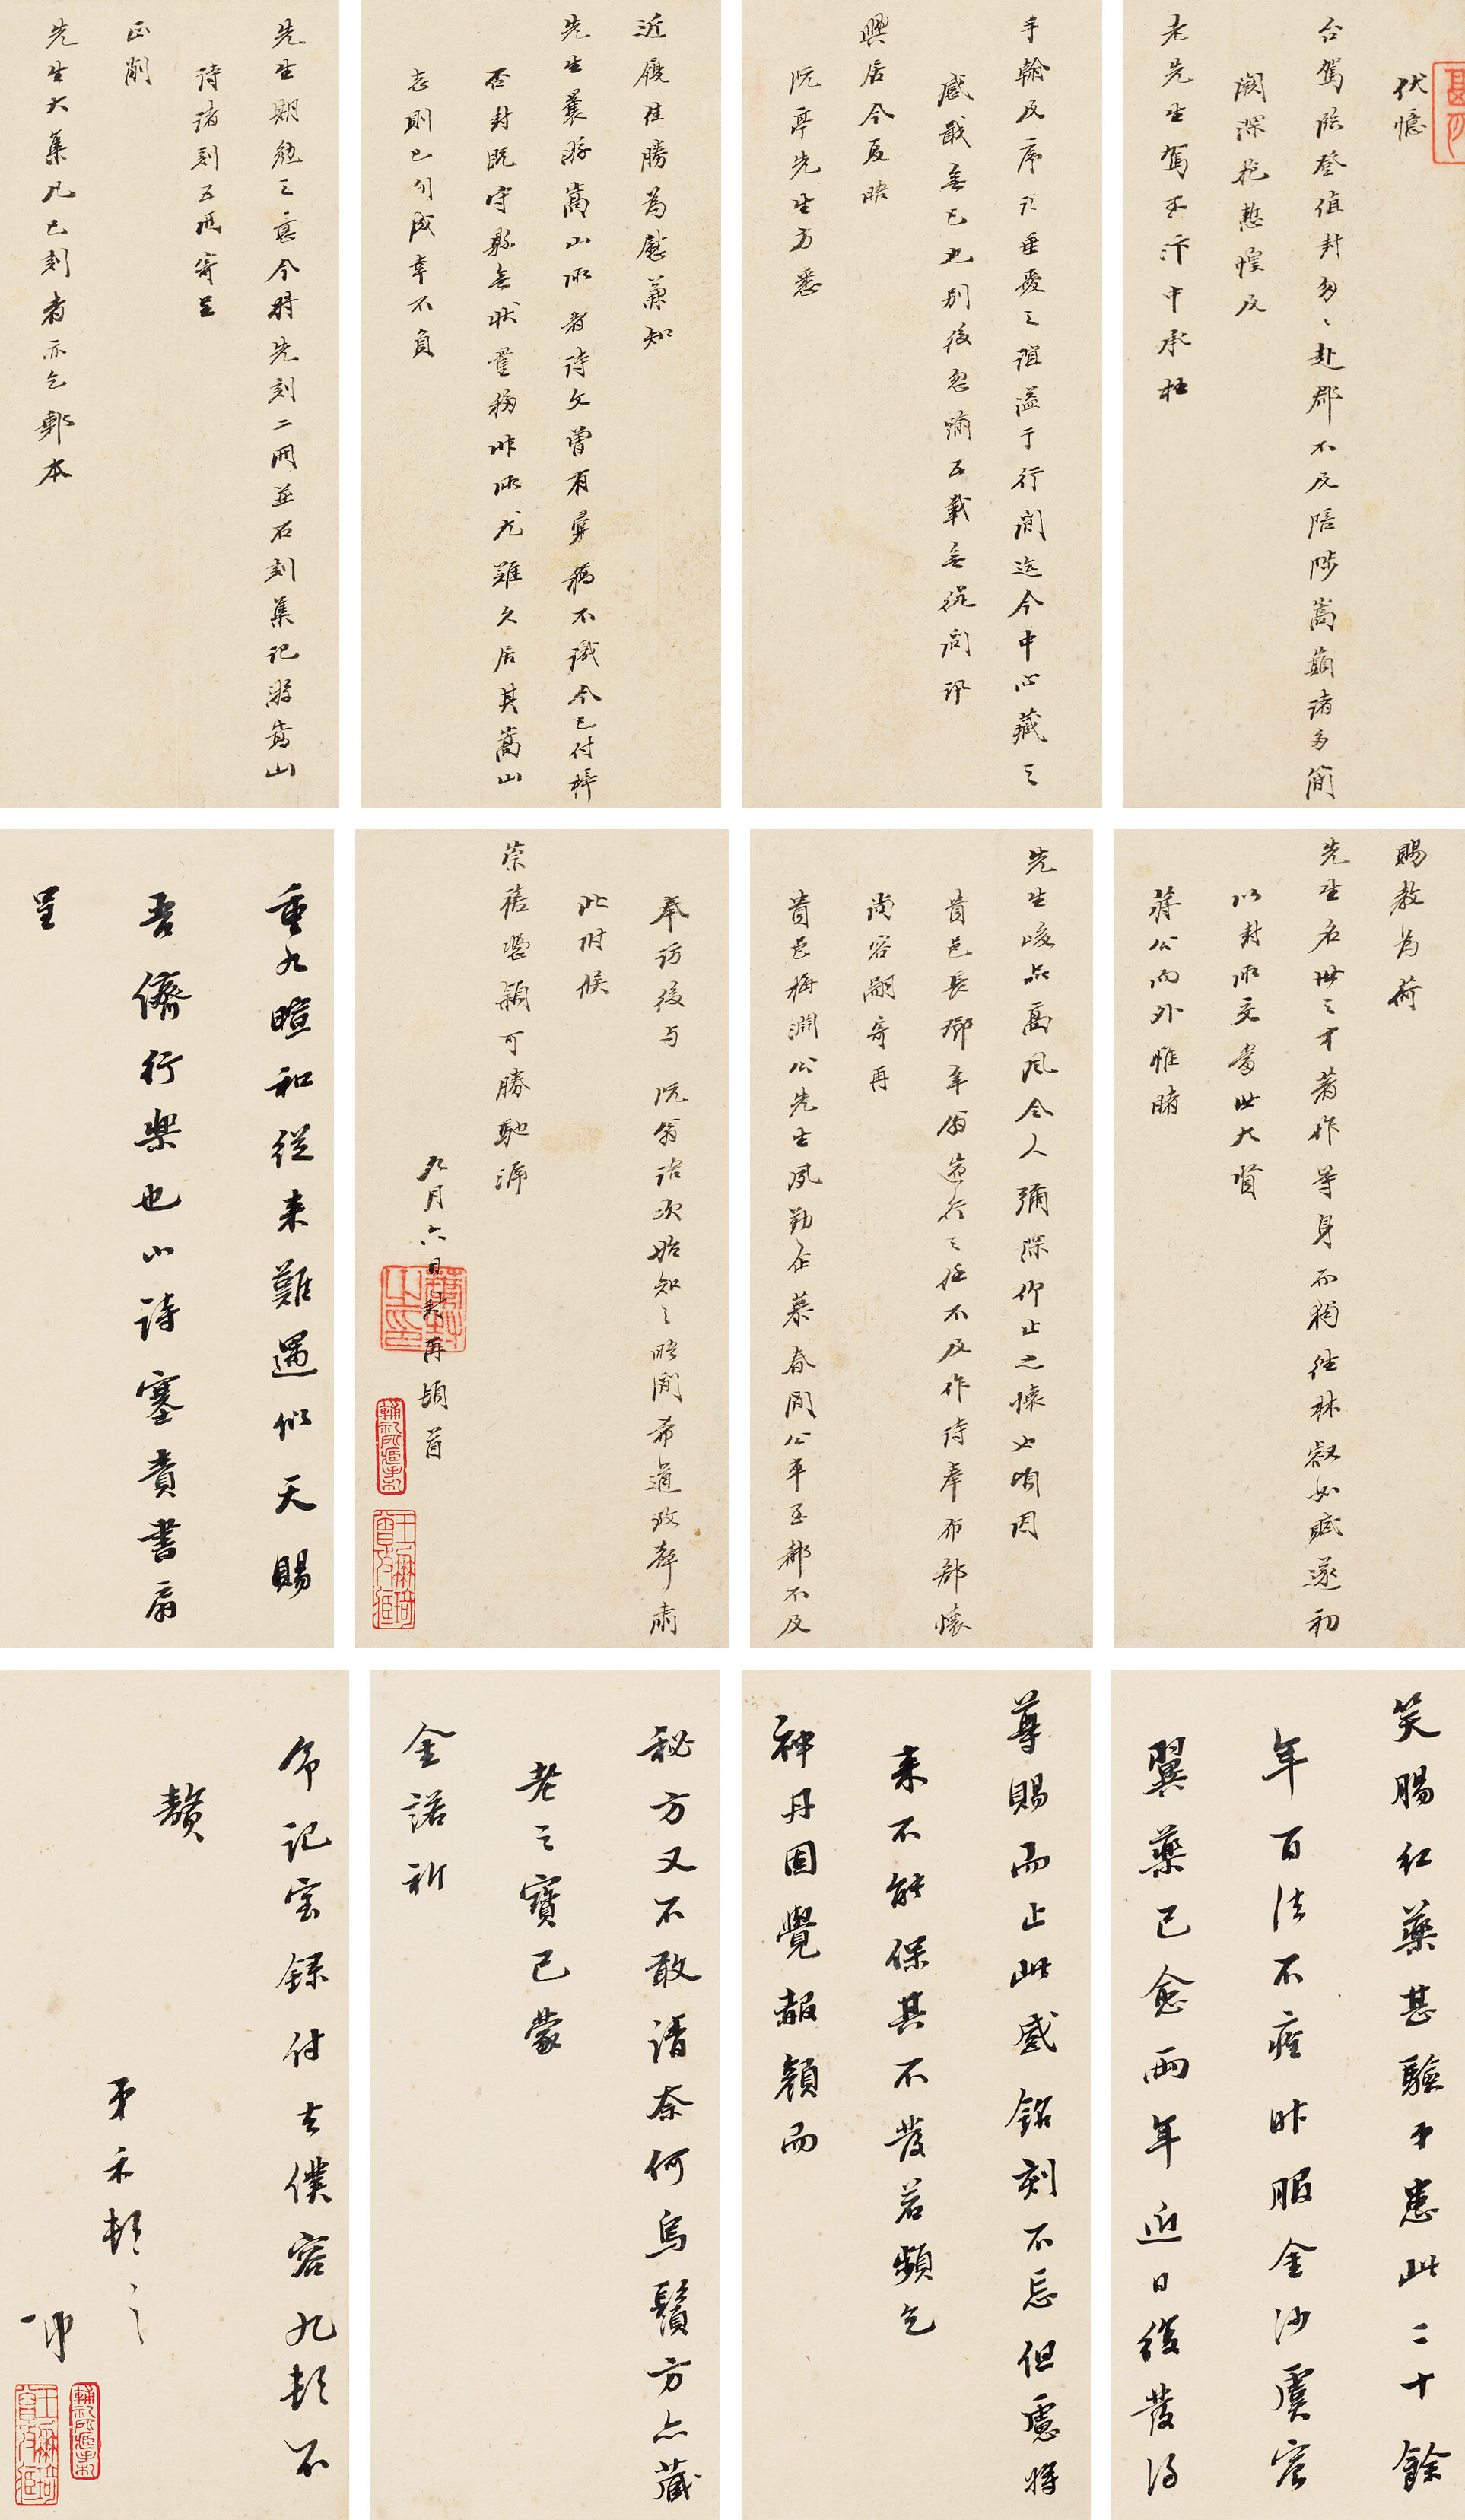 伏憶
台駕臨登值封匆匆赴郡不及陪陟嵩巔諸多簡
闕深抱愁惶及
老先生駕至汴中承枉
手翰及序言垂愛之誼溢于行間迄今中心藏之
感戢無已也別後忽踰五載無從問訊
興居今夏晤
阮亭先生方悉
近履佳勝為慰兼知
先生曩游嵩山所著詩文曾有彙稿不識今已付梓
否封既守縣無狀量移非所尤雖久居其嵩山
志則已刊成幸不負
先生期勉之意今將先刻二冊並石刻集記游嵩山
詩諸刻五冊寄呈
正削
先生大集凡已刻者亦乞郵本
賜教為荷
先生名世之才著作等身而猶徃林叡如賦遂初
以封所交當世大賢
蔣公而外惟睹
先生峻品高風令人彌深仰止之懷也頃因
貴邑長鄧年翁造行之促不及作詩奉布鄙懷
尚容嗣寄再
貴邑梅淵公先生夙勤企慕春間公車至都不及
奉訪後与阮翁語次始知之晤間希道致聲肅
此附候
崇禧翌穎可勝馳溯
九月六日封再頓首
重九暄和從来難遇似天賜
吾儕行樂也小詩塞責書扇
呈
笑賜紅藥甚驗弟患此二十餘
年百法不痊昨服金沙虞宻
翼藥已愈兩年近日後發得
尊賜而止此感銘刻不忘但慮将
来不能保其不發若頻乞
神丹固覺赧顏而
秘方又不敢請奈何烏鬚方亦藏
老之寶已蒙
金諾祈
命記室録付去僕容九頓不
贅
弟禾頓
冲